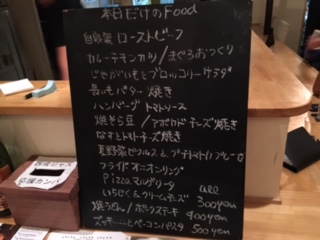 本日だけのFood
自家製 ローストビーフ
カレーチキンカツ/まぐろおつくり
じゃがいもとブロッコリーサラダ
長いもバター焼き
ハンバーグ トマトソース
焼そら豆 / アボカドチーズ焼き
なすとトマトチーズ焼き
夏野菜ピクルス &プチトマトハニー
フライドオニオンリング
Pizza マルゲリータ
いちじく&クリームチーズ all 300yen
焼うどん/ポークステーキ 400yen
ズッキーニとベーコンパスタ 500yen
応援カンパ